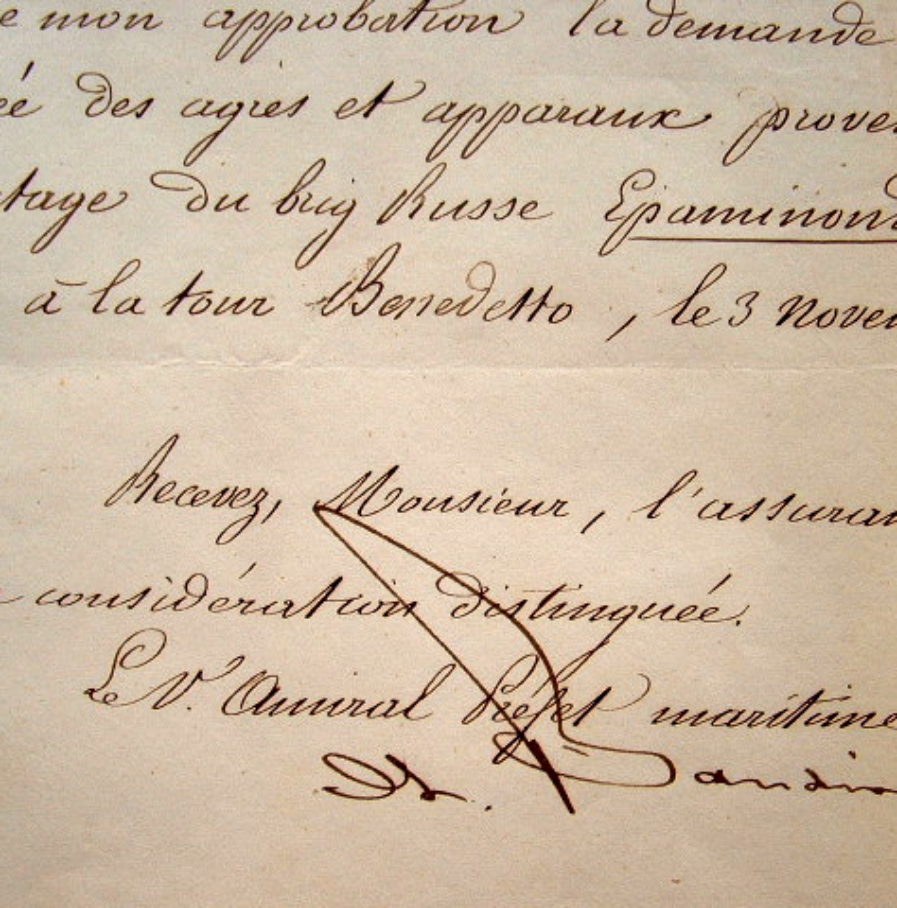 e mon approbation la demande
ée des agrès et apparaux prove
tage du brig Russe Epaminond
à la tour Benedetto, le 3 Nove
Recevez, Monsieur, l'assuran
considération distinguée.
Le V. Amiral Préfet maritime
Baudin